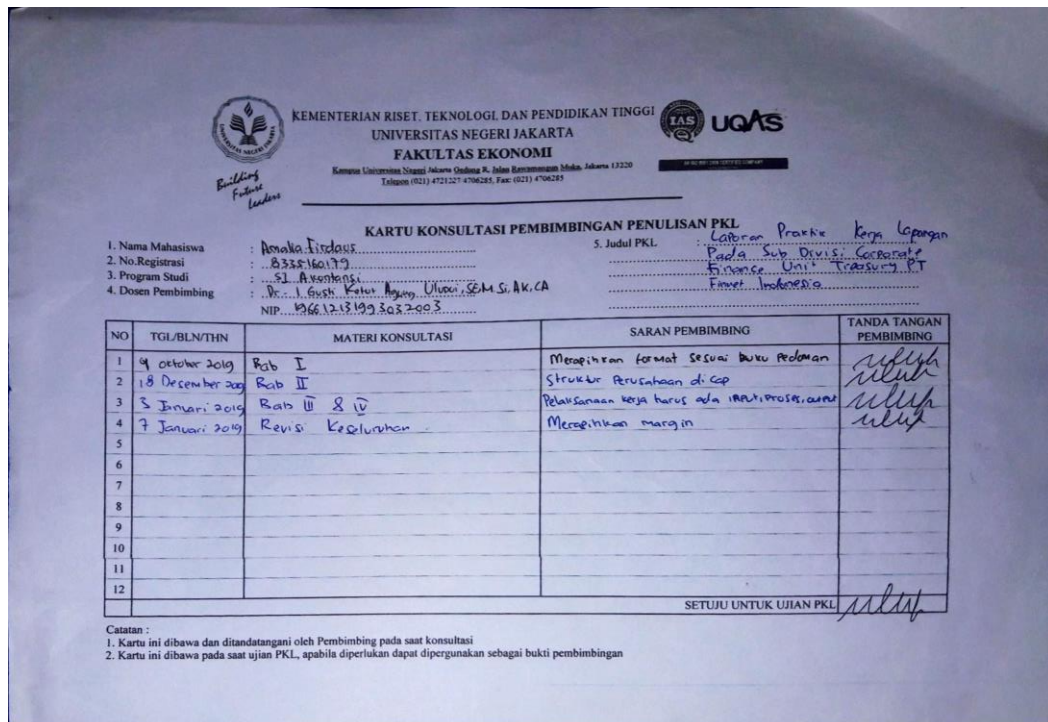 KEMENTERIAN RISET, TEKNOLOGI, DAN PENDIDIKAN TINGGI
UNIVERSITAS NEGERI JAKARTA
FAKULTAS EKONOMI
Kampus Universitas Negeri Jakarta Gedung R, Jalan Rawamangun Muka, Jakarta 13220
Telepon (021) 4721227 4706285, Fax: (021) 4706285
UNIVERSITAS NEGERI JAKARTA
Building
Future
Leaders
IAS
UQAS
KARTU KONSULTASI PEMBIMBINGAN PENULISAN PKL
1. Nama Mahasiswa : Amalia Firdaus
2. No.Registrasi : 8335160179
3. Program Studi : S1 Akuntansi
4. Dosen Pembimbing : Dr. I Gusti Ketut Agung Ulupui, SE M.Si, AK, CA
NIP. 196612131993032003
5. Judul PKL : Laporan Praktik Kerja Lapangan
Pada Sub Divisi Corporate
Finance Unit Treasury PT
Finnet Indonesia
NO TGL/BLN/THN MATERI KONSULTASI SARAN PEMBIMBING TANDA TANGAN PEMBIMBING
1 9 oktober 2019 Bab I Merapihkan format sesuai buku Pedoman
2 18 Desember Bab II Struktur Perusahaan di cap
3 3 Januari 2019 Bab III & IV Pelaksanaan kerja harus ada input, proses, output
4 7 Januari 2019 Revisi Keseluruhan Merapihkan margin
5
6
7
8
9
10
11
12
SETUJU UNTUK UJIAN PKL
Catatan :
1. Kartu ini dibawa dan ditandatangani oleh Pembimbing pada saat konsultasi
2. Kartu ini dibawa pada saat ujian PKL, apabila diperlukan dapat dipergunakan sebagai bukti pembimbingan